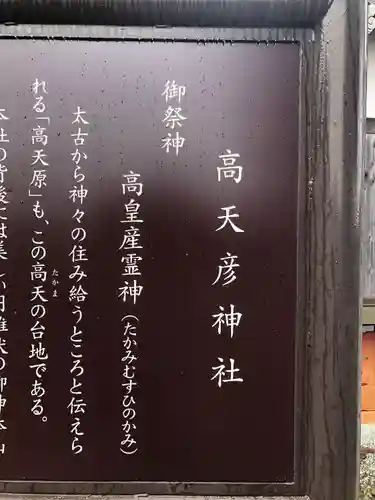 高天彦神社
御祭神
高皇産霊神（たかみむすひのかみ）
太古から神々の住み給うところと伝えら
れる「高天原」も、この高天の台地である。
たかま
本社の背後には美しい円錐状の御神体山